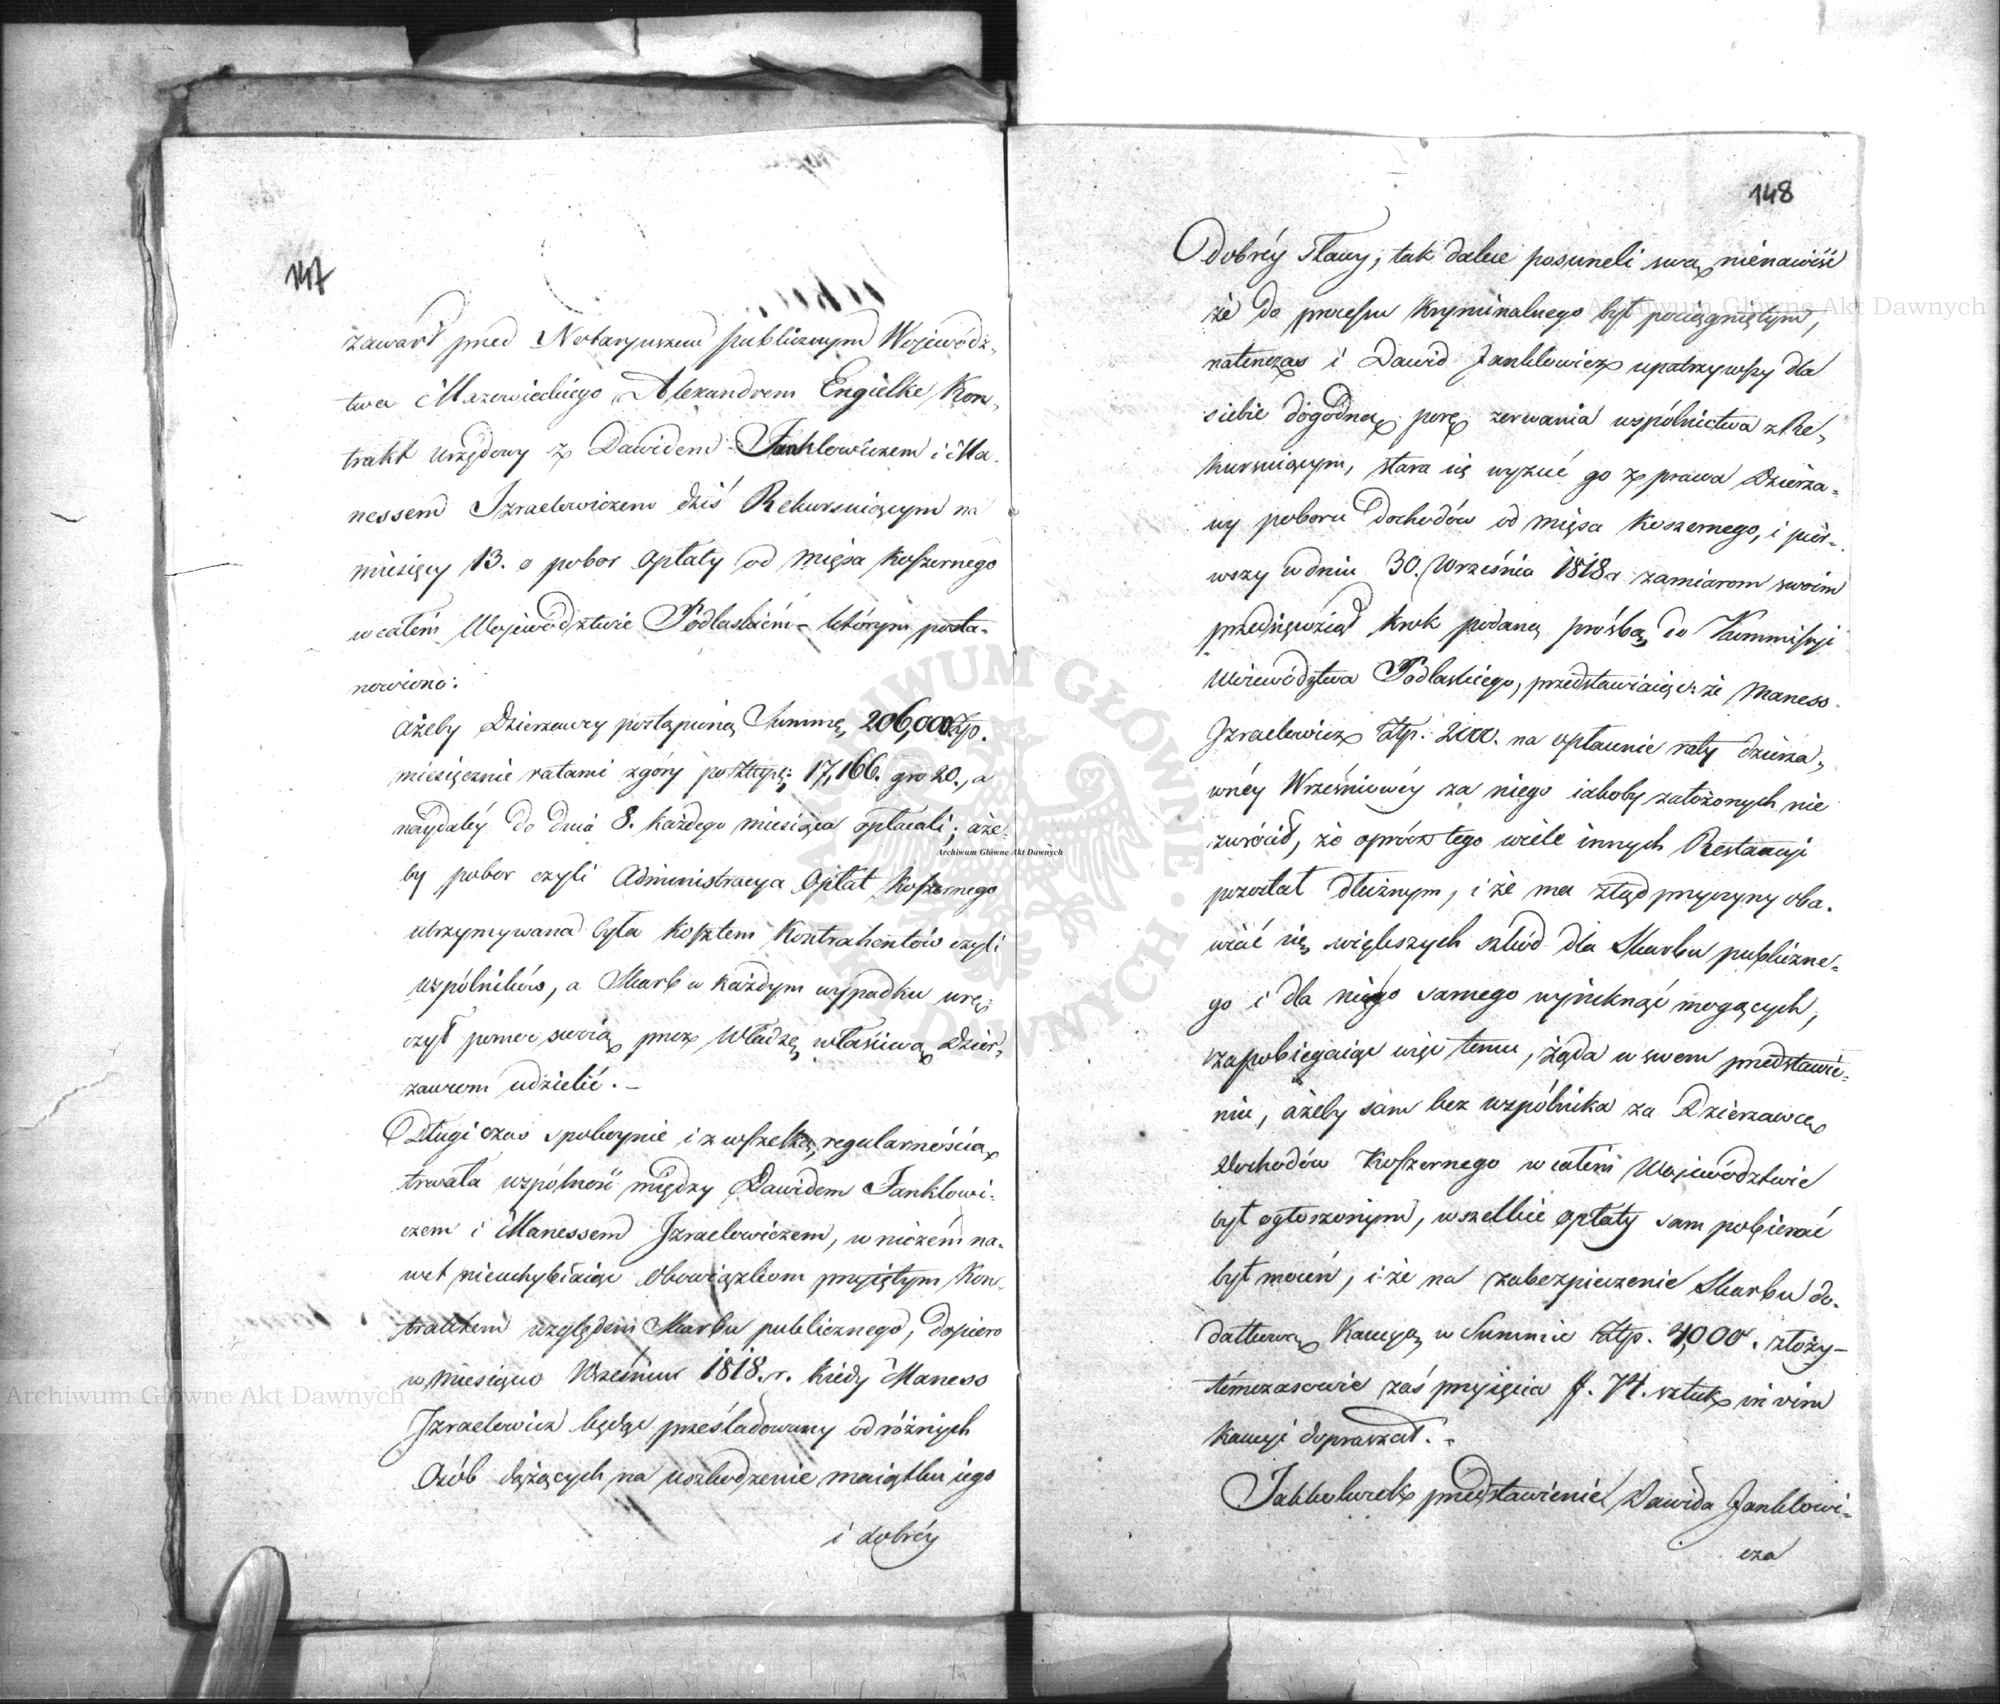 147
zawarł przed Notaryuszem publicznym Wojewódz-
twa Mazowieckiego Alexandrem Engielke Kon-
trakt urzędowy z Dawidem Janklowiczem i Ma-
nessem Izraelowiczem dziś Rekursuiącym na
miesięcy 13. o pobor opłaty od mięsa koszernego
w całém Województwie Podlaskiém – którym posta-
nowiono:
ażeby Dzierzawcy postąpioną Summę 206,000 Złp.
miesięcznie ratami zgóry po Złłp: 17,166. gro 20., a
naydaléy do dnia 8. każdego miesiąca opłacali; aże-
by pobor czyli Administracya Opłat koszernego
utrzymywana była kosztem Kontrahentów czyli
wspólników, a Skarb w każdym wypadku wrę-
czył pomoc swoią przez Władzę właściwą Dzier-
zawcom udzielić. –
Długi czas spokoynie i z wszelką regularnością
trwała wspólność między Dawidem Janklowi-
czem i Manessem Izraelowiczem, w niczém na-
wet nieuchybiaiąc obowiązkom przyiętym Kon-
traktem względem Skarbu publicznego, dopiero
w miesiącu Wrześniu 1818. r. kiedy Maness
Izraelowicz będąc prześladowany od różnych
Osób dążących na uszkodzenie maiątku iego
i dobréy
148
dobréy sławy, tak dalece posuneli swą nienawiść
że do processu kryminalnego był pociągniętym,
natenczas i Dawid Janklowicz upatrzywszy dla
siebie dogodną porę zerwania wspólnictwa z Re-
kursuiącym, stara się wyzuć go z prawa Dzierża-
wy poboru Dochodów od mięsa koszernego, i pier-
wszy w dniu 30. Września 1818 r zamiarom swoim
przedsięwziął krok podaną prośbą do Kommissyi
Woiewództwa Podlaskiego, przedstawiaiąc że Maness
Izraelowicz Złp. 2000. na opłacenie raty dzierża-
wnéy Wrześniowéy za niego iakoby założonych nie
zwrócił, że oprócz tego wiele innych Restancyi
pozostał dłużnym, i że ma ztąd przyczyny oba-
wiać się większych szkód dla Skarbu publiczne-
go i dla niego samego wyniknąć mogących,
zapobiegaiąc więc temu, żąda w swem przedstawie-
niu, ażeby sam bez wspólnika za Dzierzawcę
dochodów Koszernego w całém Województwie
był ogłoszonym, wszelkie opłaty sam pobierać
był mocen, i że na zabezpieczenie Skarbu do-
datkową Kaucyą w Summie Złp. 4,000. złoży –
témczasowie zaś przyięcia ff. 74. sztuk in vim
Kaucyi dopraszał. –
Jakkolwiek przedstawienie Dawida Janklowi-
cza
Archiwum Główne Akt Dawnych
Archiwum Główne Akt Dawnych
Archiwum Główne Akt Dawnych
ARCHIWUM GŁÓWNE AKT DAWNYCH